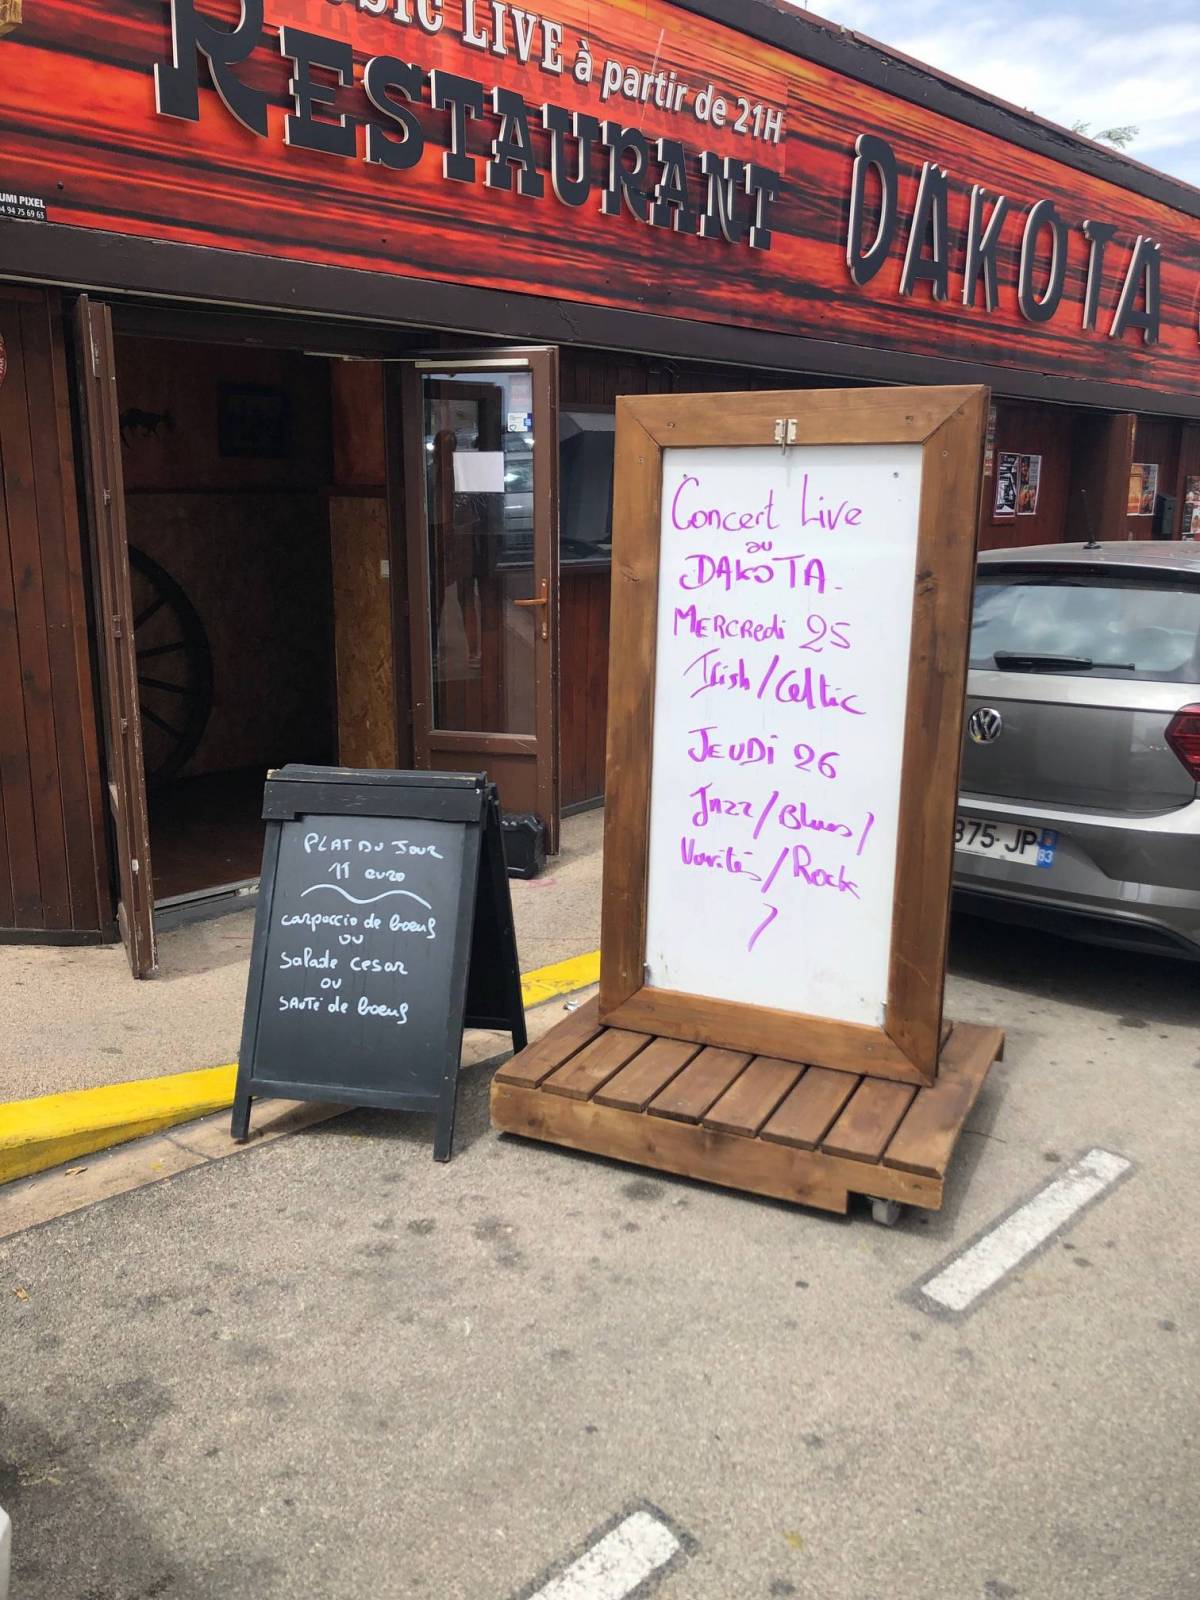 MUSIC LIVE à partir de 21H
RESTAURANT DAKOTA
LUMI PIXEL
04 94 75 69 63
Concert Live
au
DAKOTA.
MERCREdi 25
Irish/Celtic
JEUDI 26
Jazz/Blues/
Variétés/Rock
/
PLAT DU JOUR
11 euro
carpaccio de boeuf
ou
Salade cesar
ou
SAUTé de boeuf
875-JP
83